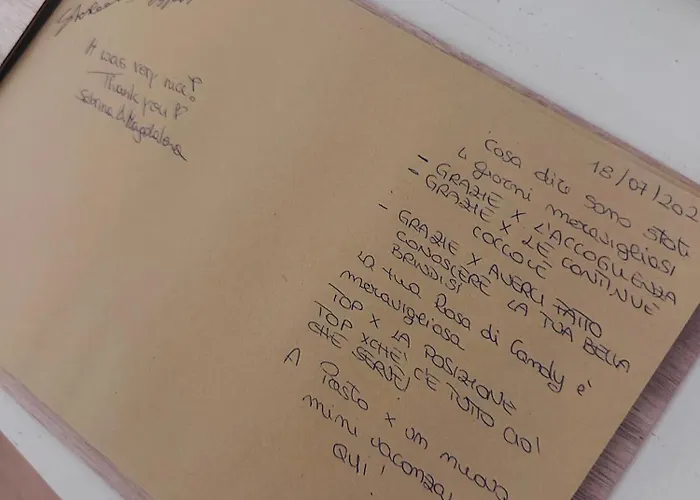 It was very nice!
Thank you
Sabrina & Magdalena
18/07/202
Cosa dire sono stati
4 giorni meravigliosi
- GRAZIE X L'ACCOGLIENZA
- GRAZIE X LE CONTINUE
COCCOLE
- GRAZIE X AVERCI FATTO
CONOSCERE LA TUA BELLA
BRINDISI
La tua Casa di Candy è
meravigliosa
TOP X LA POSIZIONE
TOP XCHÉ C'È TUTTO CIÒ
CHE SERVE!
A Presto x un nuova
mini vacanza
QUI!